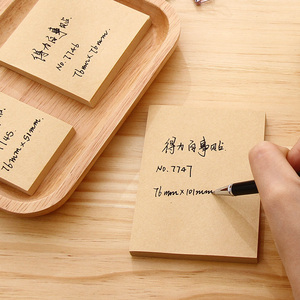 得力百事贴
No.7746
76mm×76mm
7745
76mm×51mm
得力百事贴
No.7747
76mm×101mm